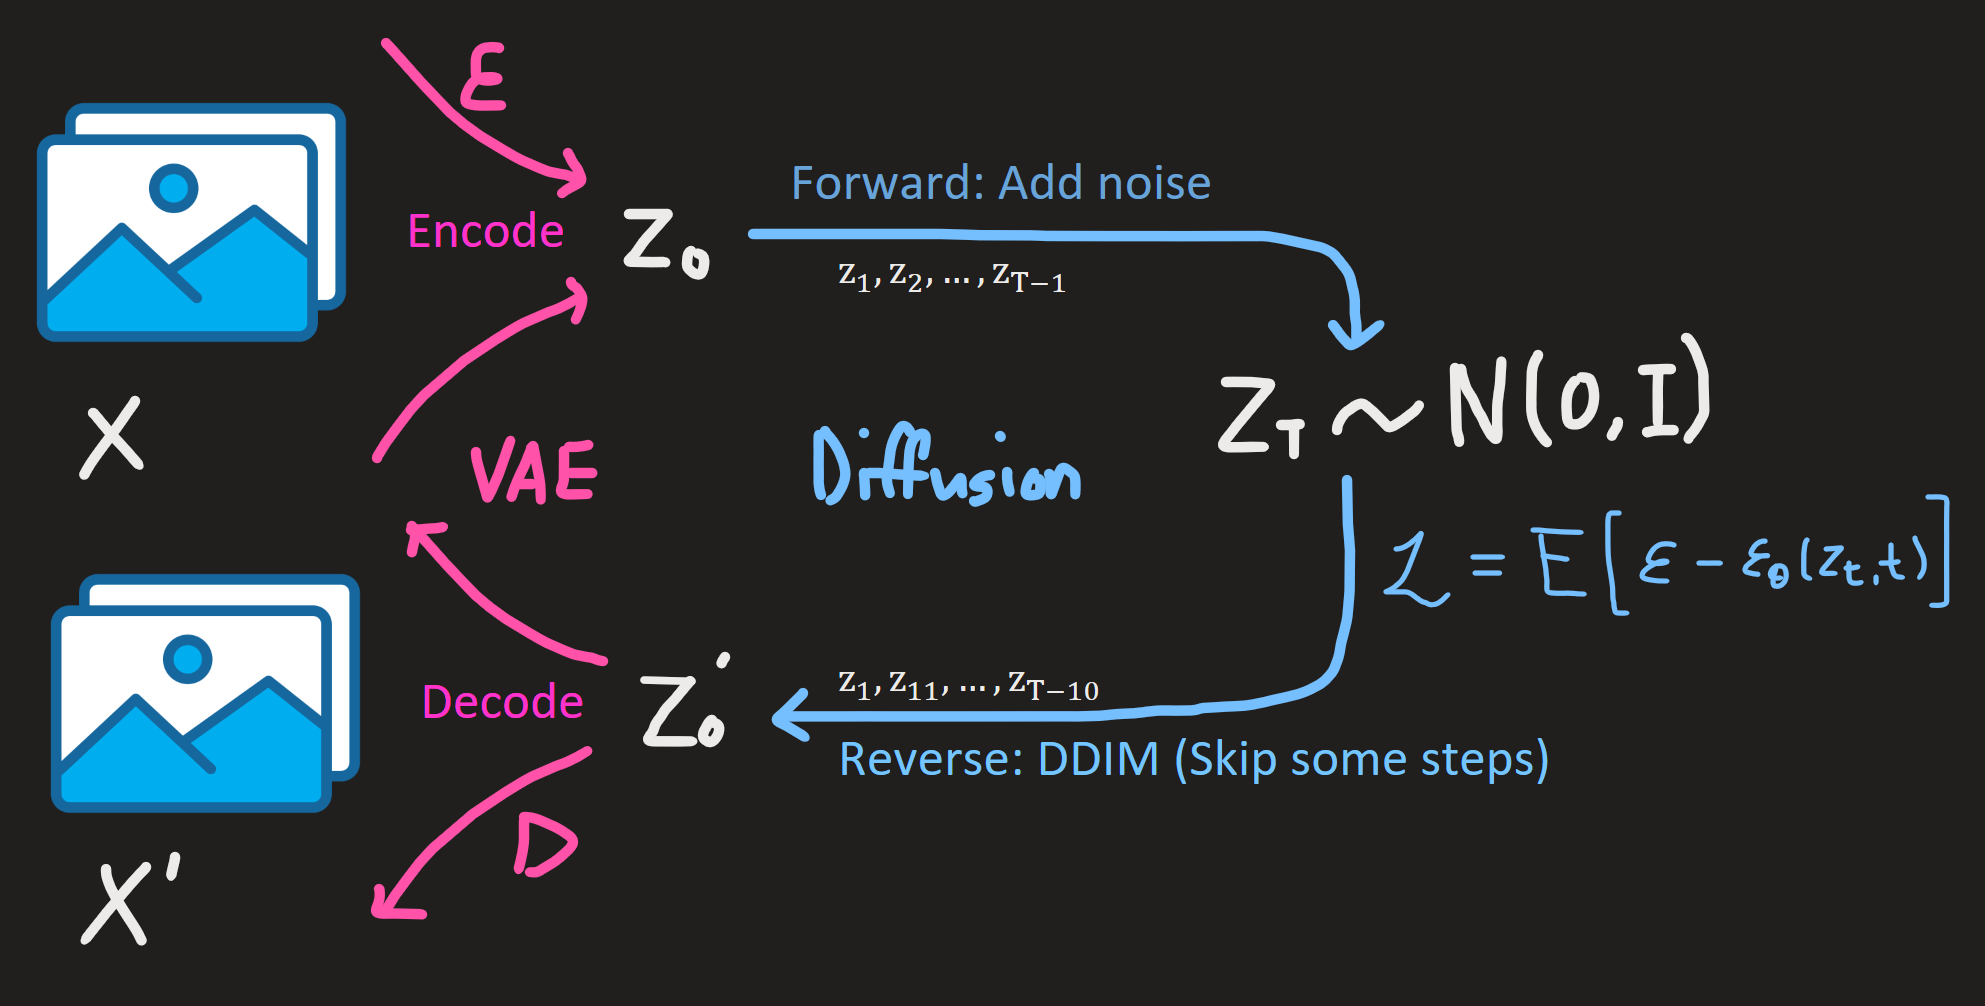 E
Forward: Add noise
Encode
Z₀
z₁, z₂, ..., z_{T−1}
X
Z_T ~ N(0, I)
VAE
Diffusion
ℒ = E[ε − ε_θ(z_t, t)]
Decode
Z₀′
z₁, z₁₁, ..., z_{T−10}
Reverse: DDIM (Skip some steps)
D
X′